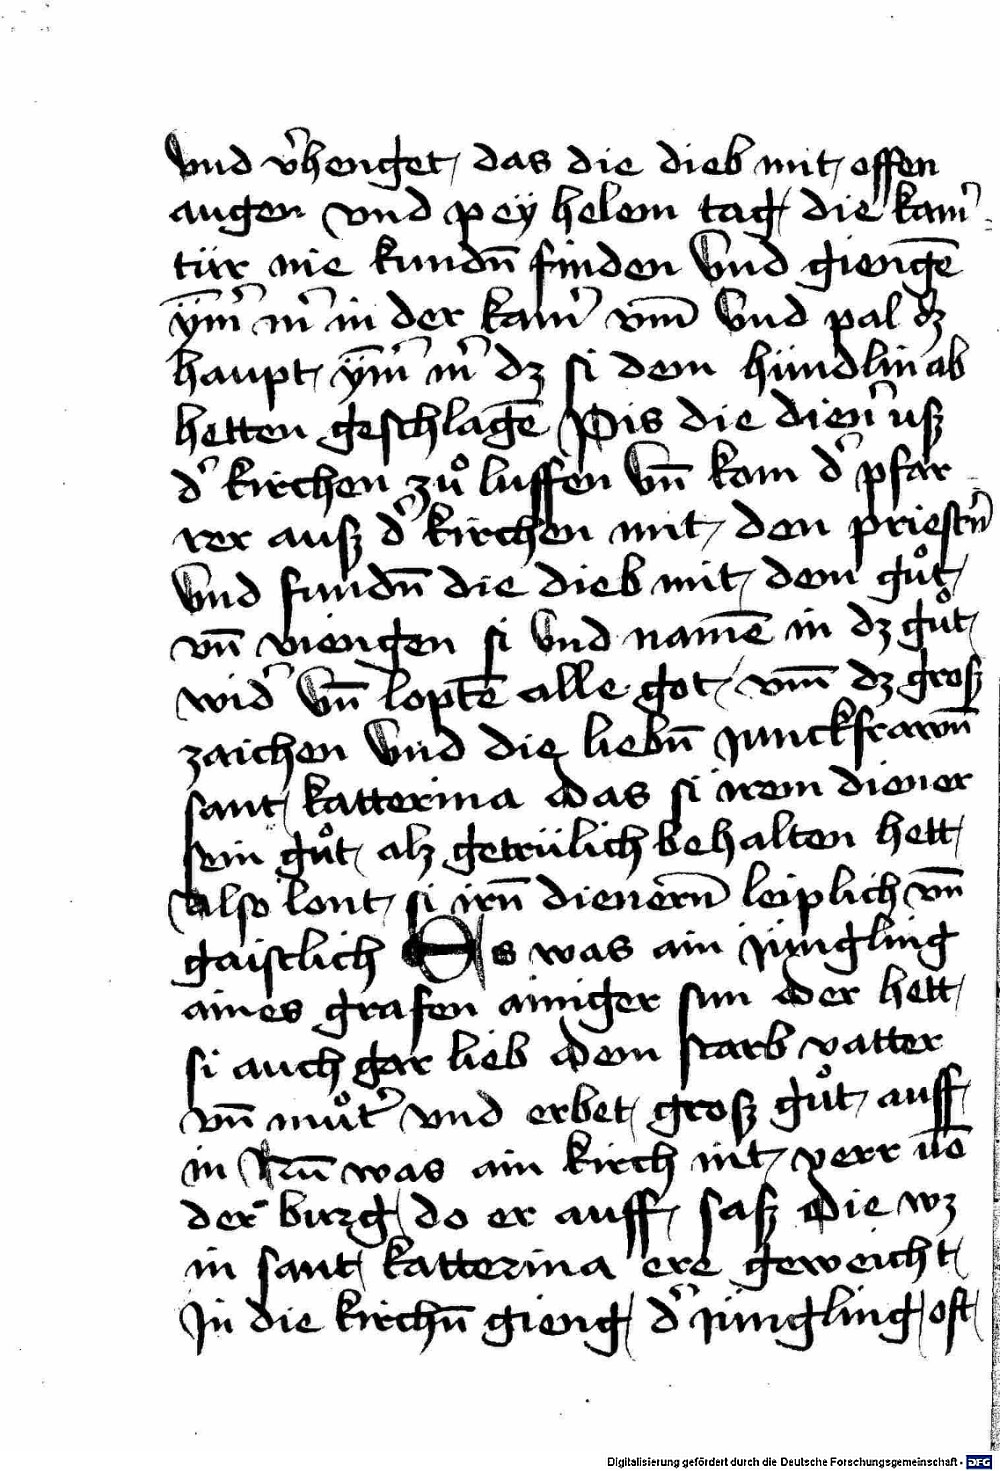 vnd v̉henget das die dieb mit offen
augen vnd pey helem tag die kam̉
tür nie kundn̄ finden vnd giengē
ym̄̉ m̉ in der kam̉ vm̄ vnd pal dz
haupt ym̄̉ m̉ dz si dem hündlin ab
hetten geschlagē Pis die dien̉ uß
d̉ kirchen zů luffen vn̄ kam d̉ pfar
rer auß d̉ kirchen mit den priestn̉
vnd fundn̄ die dieb mit dem gůt
vn̄ viengen si vnd namē in dz gůt
wid̉ vn̄ loptē alle got vm̄ dz groß
zaichen vnd die liebn̄ junckfrawn̄
sant katterina das si irem diener
sein gůt alz getrülich behalten hett
also lont si irn̄ dienern̄ leiplich vn̄
gaistlich Es was ain jüngling
aines grafen ainiger sun der hett
si auch gar lieb dem starb vatter
vn̄ můt̉ vnd erbet groß gůt auff
in Nū was ain kirch nit verr uō
der burg do er auff saß Die wz
in sant katterina ere geweicht
In die kirchn̄ gieng d̉ jüngling oft
Digitalisierung gefördert durch die Deutsche Forschungsgemeinschaft - DFG